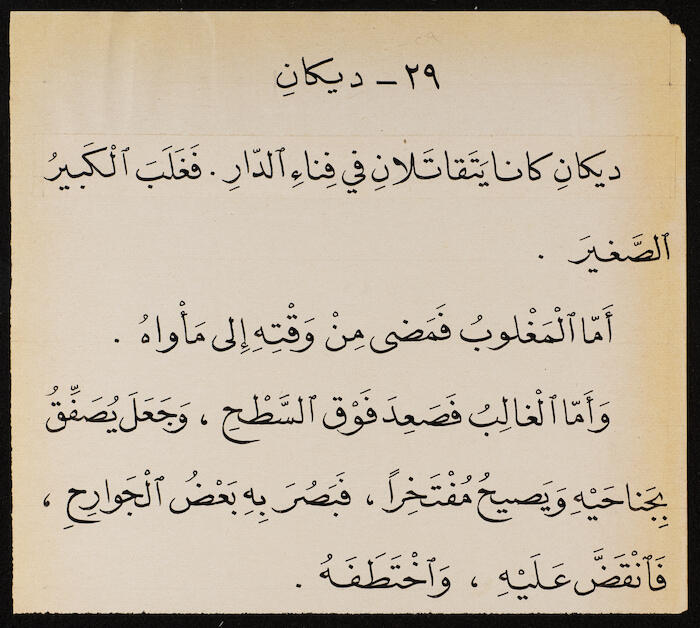 ٢٩ ـ ديكانِ
ديكانِ كانا يَتَقاتَلانِ في فِناءِ ٱلدّارِ . فَغَلَبَ ٱلْكَبيرُ
ٱلصَّغيرَ .
أَمّا ٱلْمَغْلوبُ فَمَضى مِنْ وَقْتِهِ إِلى مَأْواهُ .
وَأَمّا ٱلْغالِبُ فَصَعِدَ فَوْقَ ٱلسَّطْحِ ، وَجَعَلَ يُصَفِّقُ
بِجَناحَيْهِ وَيَصيحُ مُفْتَخِراً ، فَبَصُرَ بِهِ بَعْضُ ٱلْجَوارِحِ ،
فَٱنْقَضَّ عَلَيْهِ ، وَٱخْتَطَفَهُ .